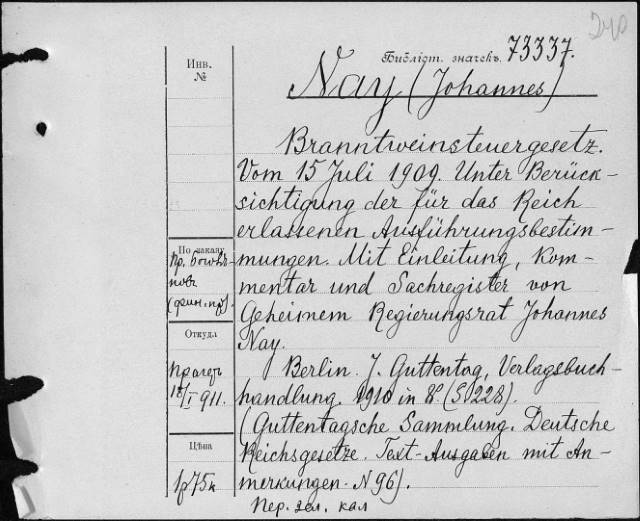 240
Библіот. значекъ 73337.
Инв. №
Nay (Johannes)
Branntweinsteuergesetz.
Vom 15 Juli 1909. Unter Berück-
sichtigung der für das Reich
erlassenen Ausführungsbestim-
mungen. Mit Einleitung, Kom-
mentar und Sachregister von
Geheimem Regierungsrat Johannes
Nay.
Berlin. J. Guttentag, Verlagsbuch-
handlung. 1910 in 8°. (S. 228).
(Guttentagsche Sammlung. Deutsche
Reichsgesetze. Text-Ausgaben mit An-
merkungen. N 96).
По заказу
пр.
(фин. пр).
Откуда
Прагеръ
18/I 911.
Цѣна
1р 75к
Пер. зел. кал